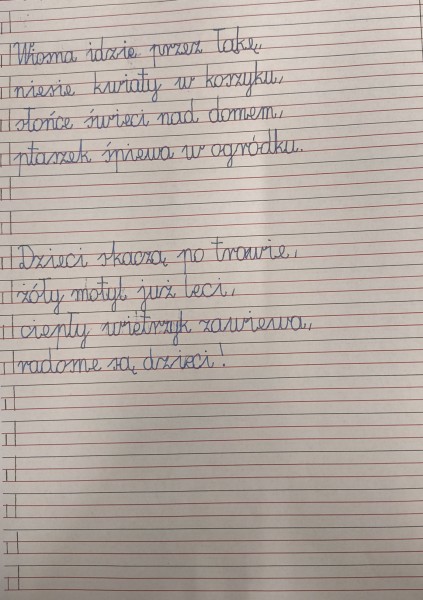 Wiosna idzie przez łąkę,
niesie kwiaty w koszyku,
słońce świeci nad domem,
ptaszek śpiewa w ogródku.
Dzieci skaczą po trawie,
żółty motyl już leci,
ciepły wietrzyk zawiewa,
radosne są dzieci!